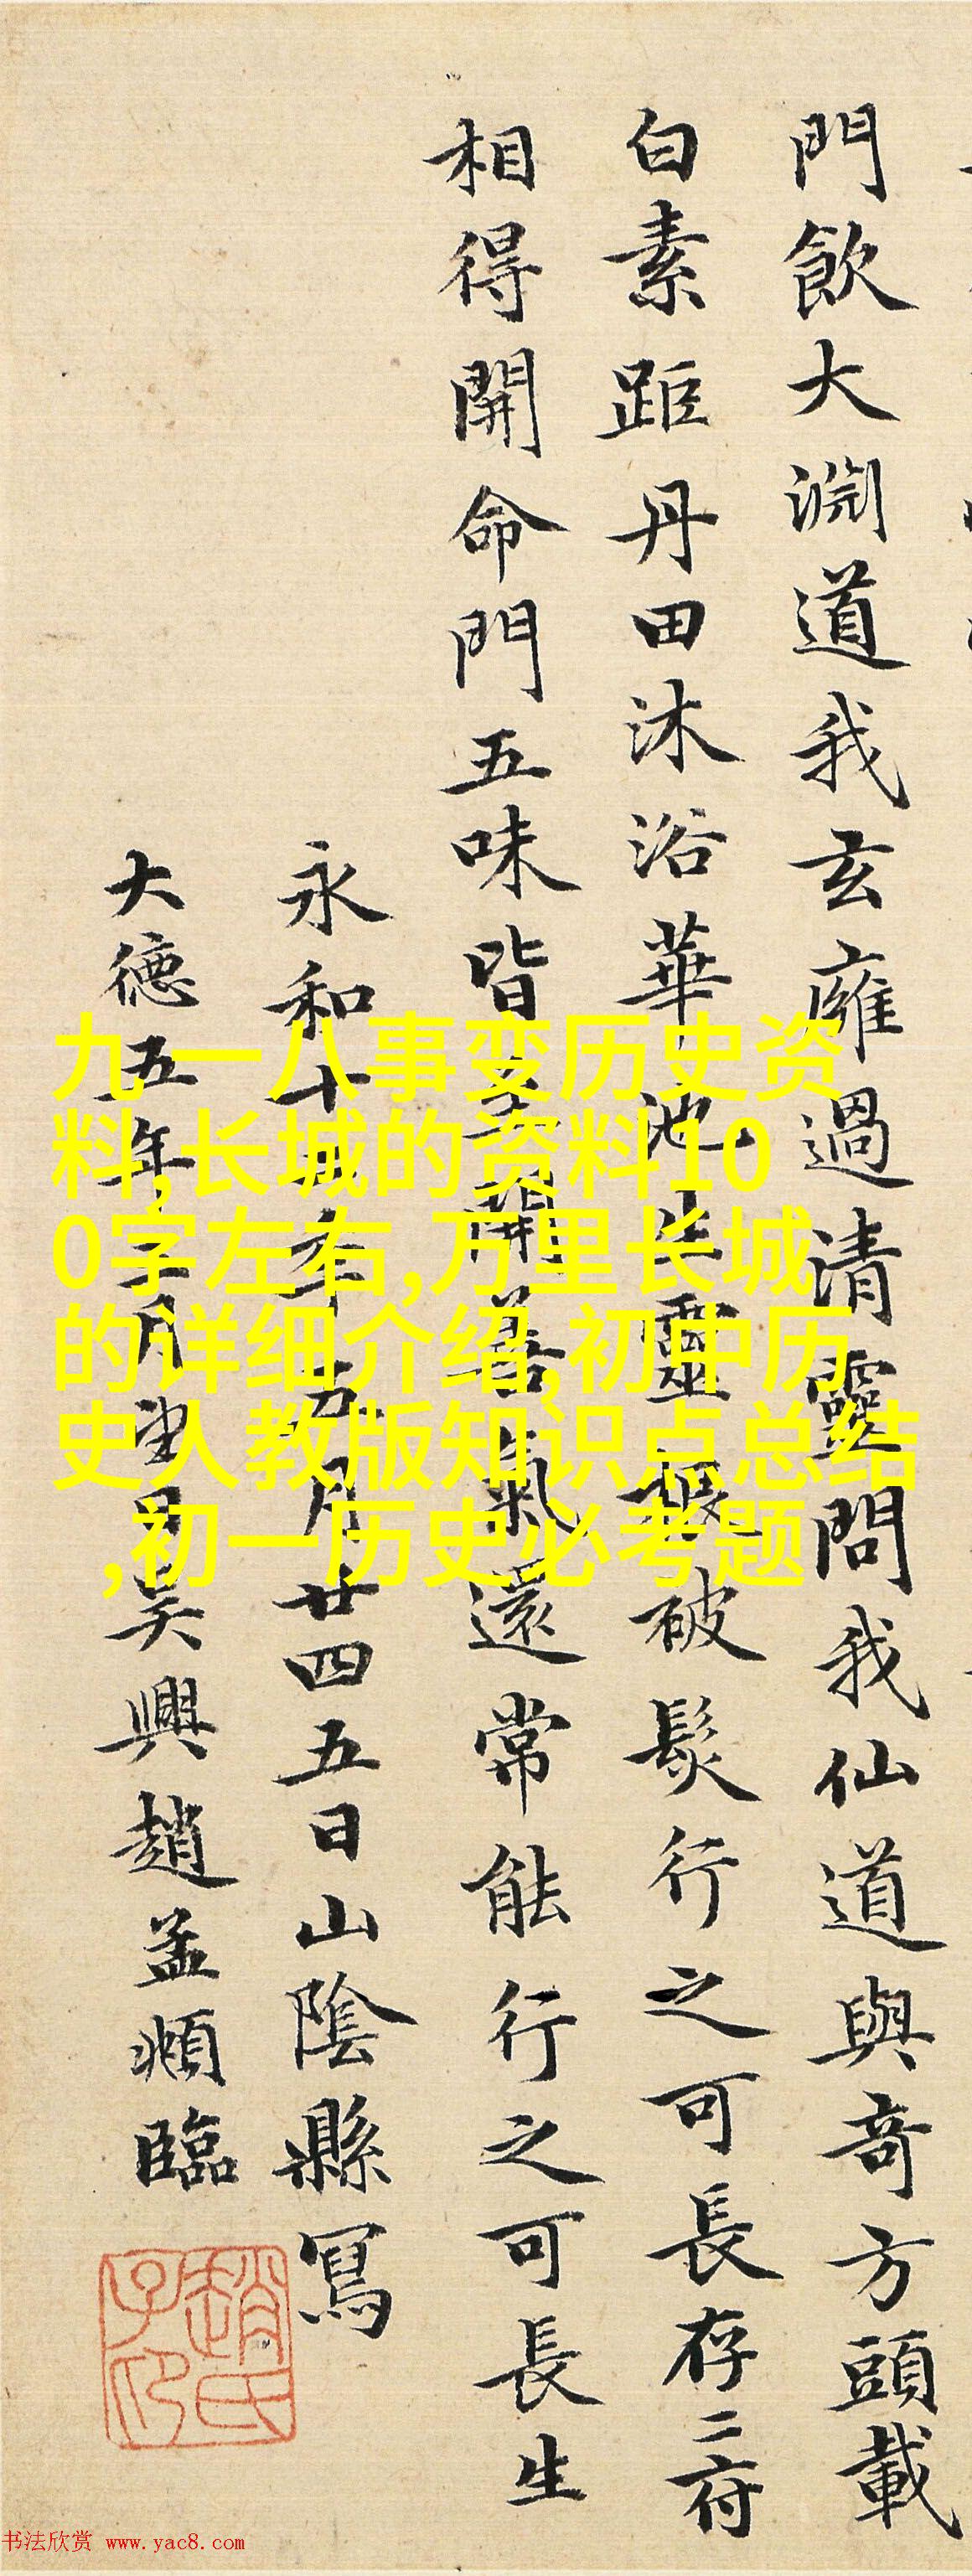 門飲大淵道我玄廱過清靈問我仙道與奇方頭載
白素距丹田沐浴華池生靈根被髮行之可長存二府
相得開命門五味皆至開善氣還常能行之可長生
永和十二年五月廿四五日山陰縣寫
大德五年月望日吳興趙孟頫臨
趙氏子昂
九一八事变历史资
料,长城的资料10
0字左右,万里长城
的详细介绍,初中历
史人教版知识点总结
,初一历史必考题
书法欣赏 www.yac8.com